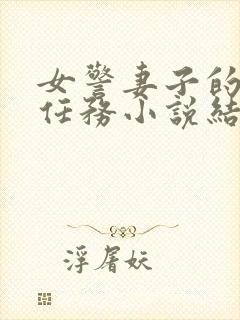 女警妻子的
任務小說結
浮屠妖